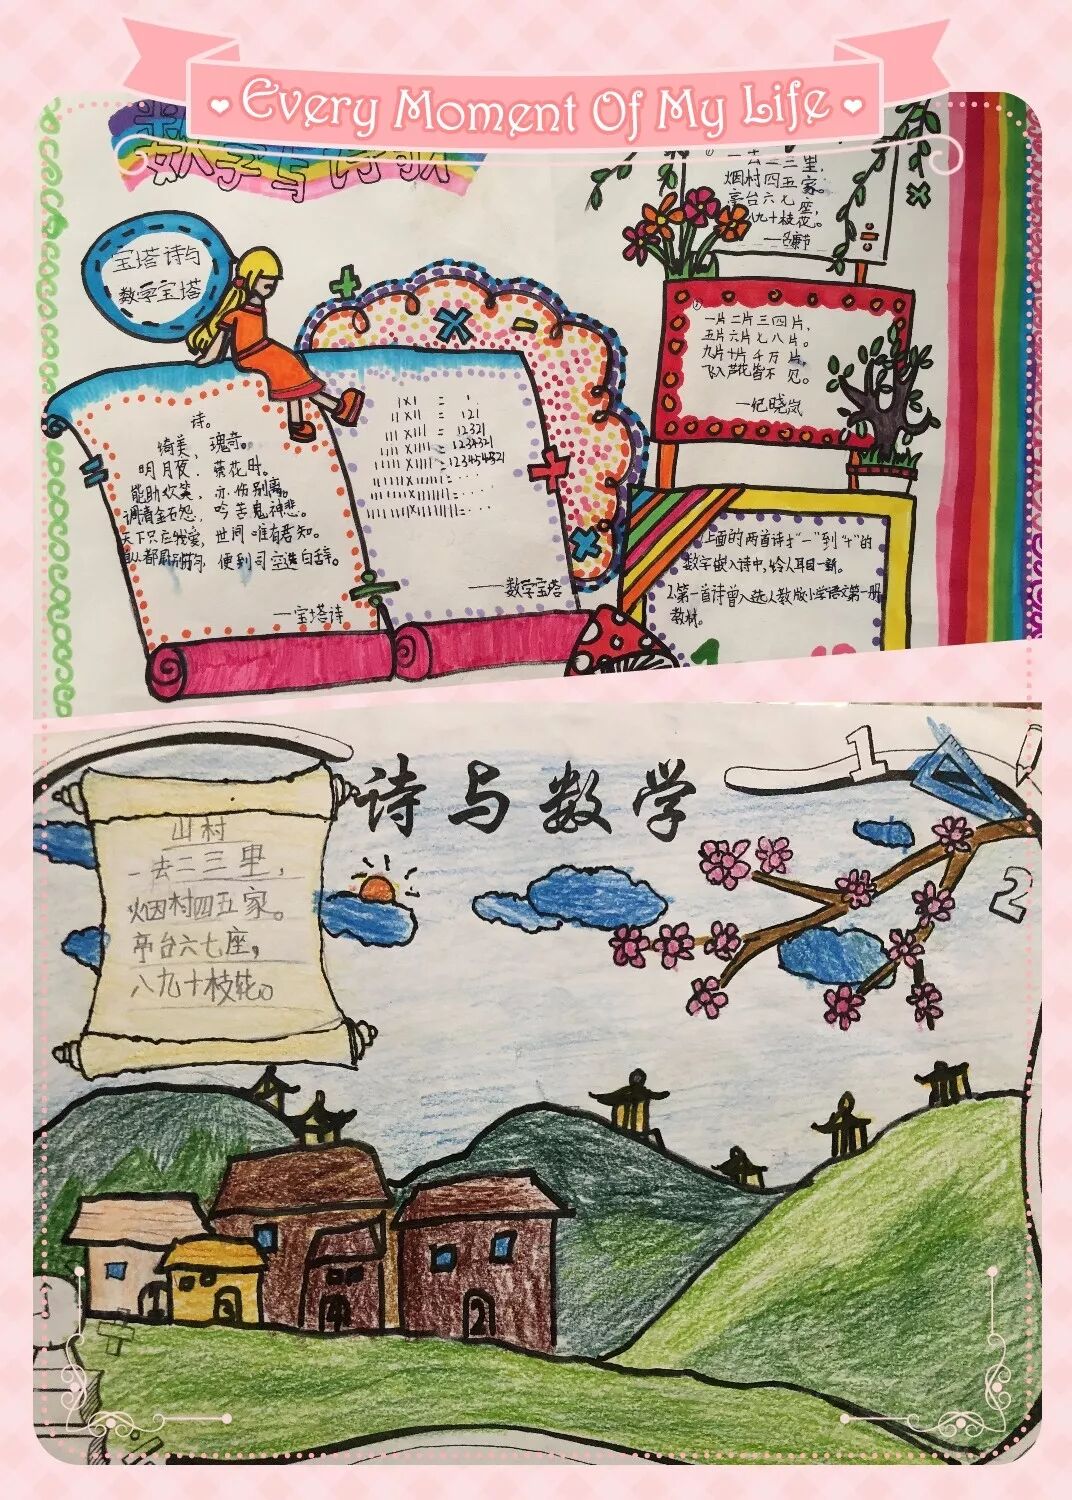 Every Moment Of My Life
数学与诗歌
宝塔诗与
数学宝塔
诗。
绮美，瑰奇。
明月夜，落花时。
能助欢笑，亦伤别离。
调清金石怨，吟苦鬼神悲。
天下只应我爱，世间唯有君知。
自从都尉别苏句，便到司空送白辞。
—宝塔诗
1×1 = 1.
11×11 = 121
111×111 = 12321
1111×1111 = 1234321
11111×11111=123454321
——数学宝塔
一去二三里，
烟村四五家。
亭台六七座，
八九十枝花。
②
一片二片三四片，
五片六片七八片。
九片十片千万片，
飞入芦花皆不见。
—纪晓岚
上面的两首诗才"一"到"十"的
数字嵌入诗中，令人耳目一新。
2.第一首诗曾入选人教版小学语文第一册
教材。
诗与数学
1
2
山村
一去二三里，
烟村四五家。
亭台六七座，
八九十枝花。